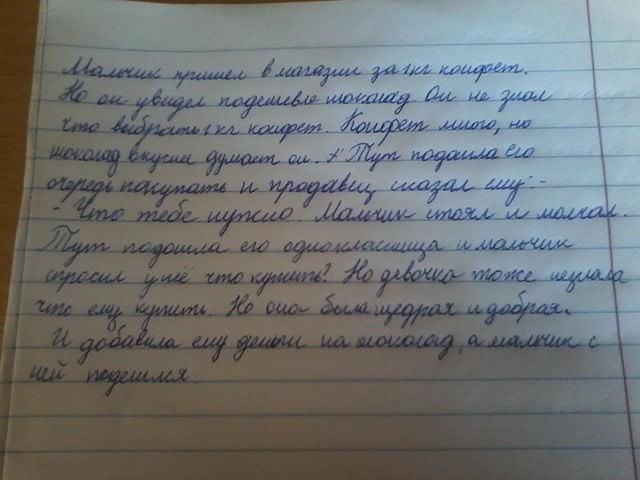 Мальчик пришел в магазин за 1кг конфет.
Но он увидел подешевле шоколад Он не знал
что выбрать 1 кг конфет. Конфет много, но
шоколад вкусне думает он. Тут подошла его
очередь покупать и продавец сказал ему:-
- Что тебе нужно. Мальчик стоял и молчал.
Тут подошла его одноклассница и мальчик
спросил у неё что купить? Но девочка тоже незнала
что ему купить. Но она была щедрая и добрая.
И добавила ему деньги на шоколад, а мальчик с
ней поделился.